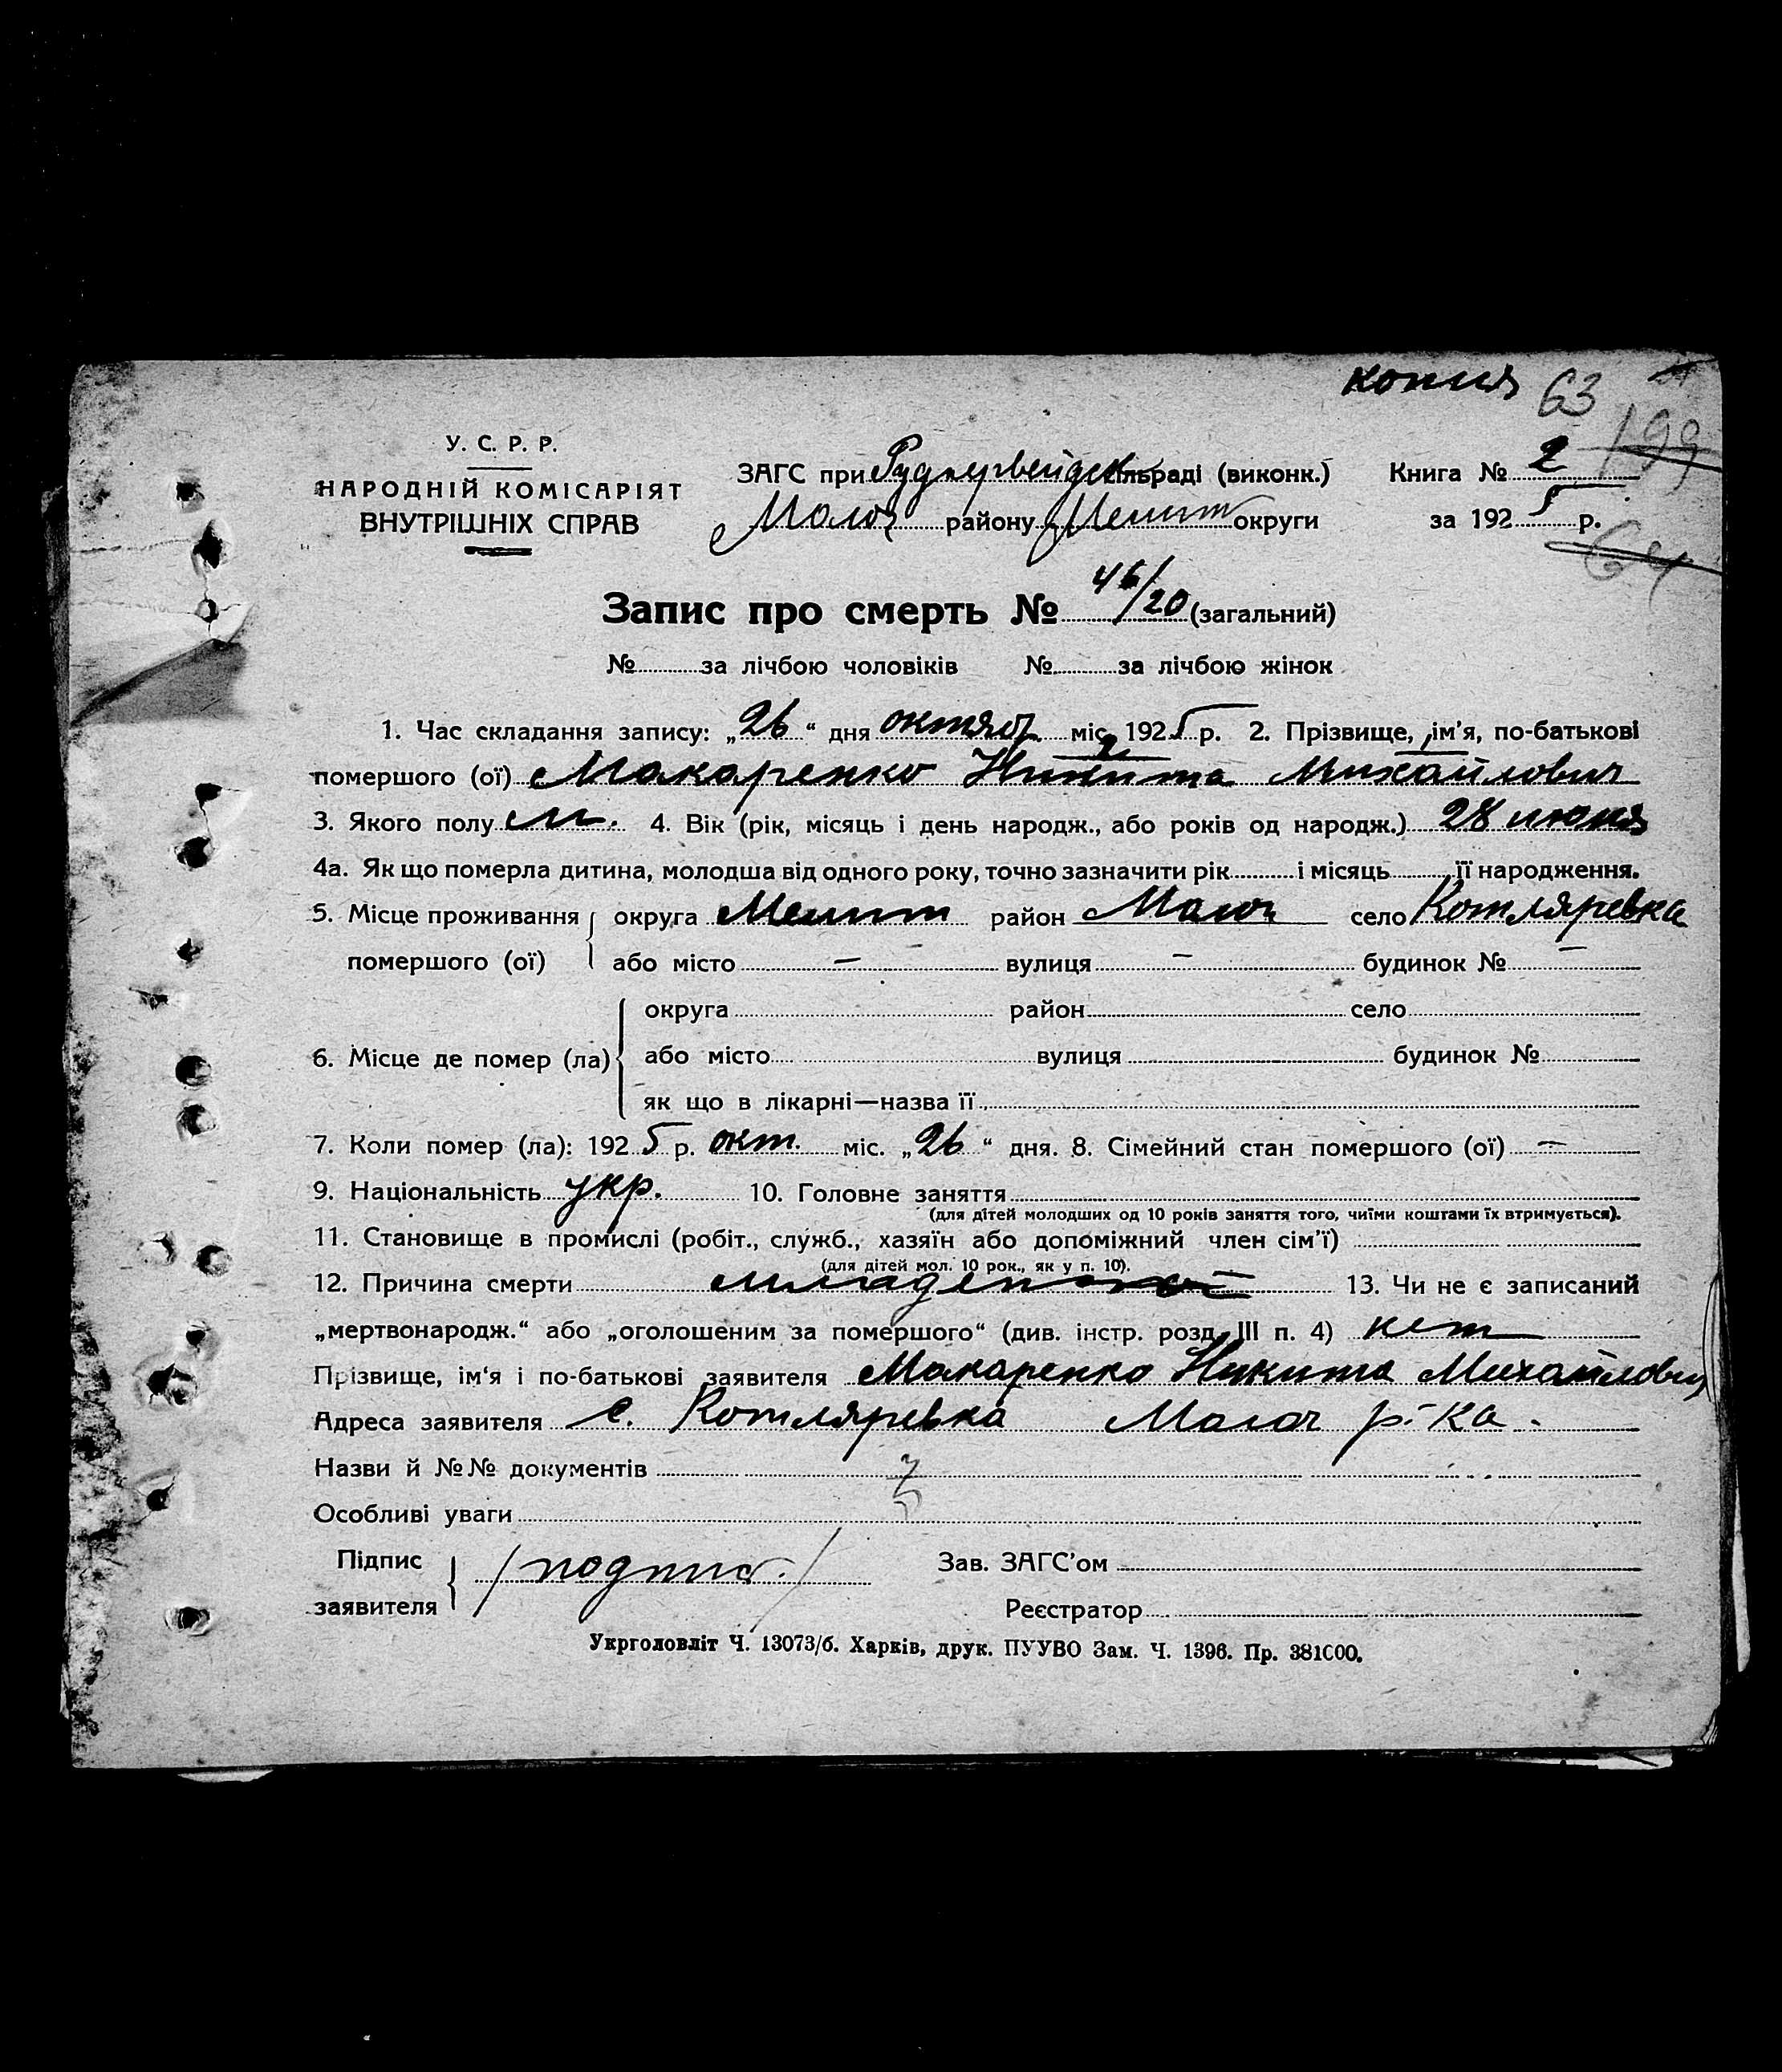 копия 63
199
У. С. Р. Р.
НАРОДНІЙ КОМІСАРІЯТ
ВНУТРІШНІХ СПРАВ
ЗАГС при сільраді (виконк.) Книга № 2
Молоч району Мелит округи за 1925 р.
64
Запис про смерть № 46/20 (загальний)
№ за лічбою чоловіків № за лічбою жінок
1. Час складання запису: „26“ дня октяб. міс. 1925 р. 2. Прізвище, ім'я, по-батькові
помершого (ої) Макаренко Никита Михайлович
3. Якого полу м. 4. Вік (рік, місяць і день народж., або років од народж.) 28 июня
4а. Як що померла дитина, молодша від одного року, точно зазначити рік і місяць її народження.
5. Місце проживання округа Мелит район Молоч село Котляревка
помершого (ої) або місто — вулиця — будинок № —
округа район село
6. Місце де помер (ла) або місто вулиця будинок №
як що в лікарні—назва її
7. Коли помер (ла): 1925 р. окт. міс. „26“ дня. 8. Сімейний стан помершого (ої) —
9. Національність укр. 10. Головне заняття
(для дітей молодших од 10 років заняття того, чиїми коштами їх втримується).
11. Становище в промислі (робіт., служб., хазяїн або допоміжний член сім'ї)
(для дітей мол. 10 рок., як у п. 10).
12. Причина смерти 13. Чи не є записаний
„мертвонародж.“ або „оголошеним за помершого“ (див. інстр. розд. III п. 4) нет
Прізвище, ім'я і по-батькові заявителя Макаренко Никита Михайлович
Адреса заявителя с. Котляревка Молоч р-ка.
Назви й №№ документів
Особливі уваги
Підпис
заявителя /подпись/
Зав. ЗАГС'ом
Реєстратор
Укрголовліт Ч. 13073/б. Харків, друк. ПУУВО Зам. Ч. 1396. Пр. 381000.